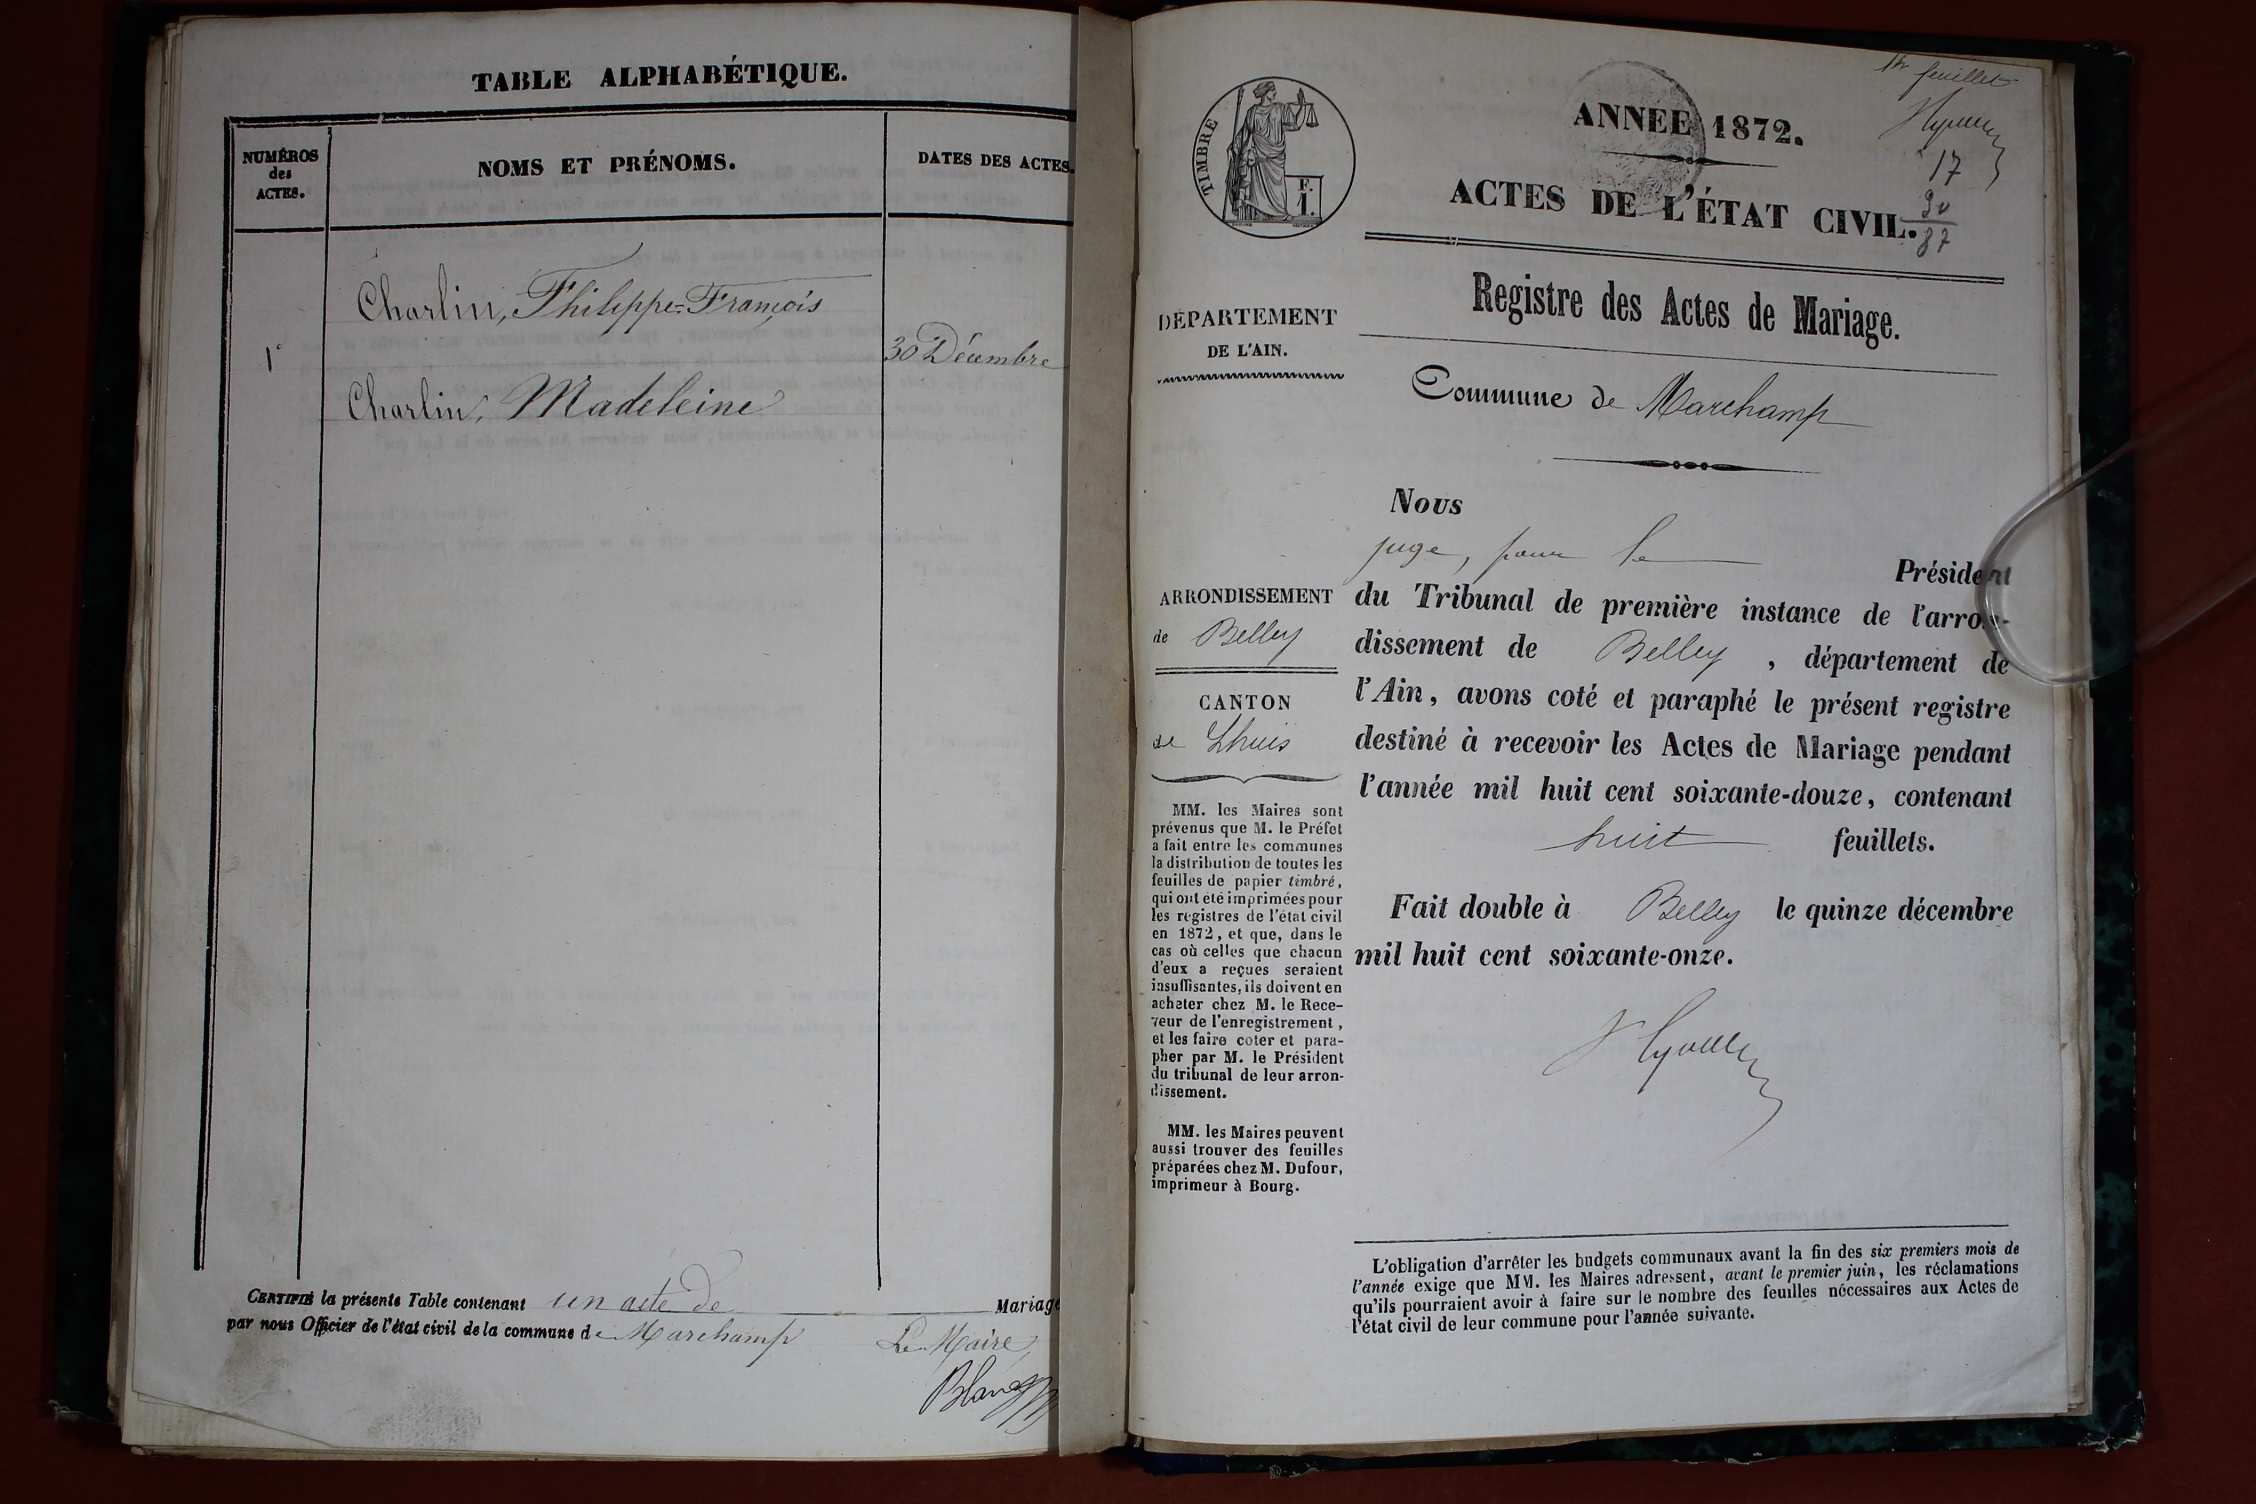 TABLE ALPHABÉTIQUE.
NUMÉROS
des
ACTES.
NOMS ET PRÉNOMS.
DATES DES ACTES.
Charlin, Philippe-François
1°
30 Décembre
Charlin, Madeleine
CERTIFIÉ la présente Table contenant un acte de Mariage
par nous Officier de l'état civil de la commune de Marchamp
Le Maire,
Blanc
1er feuillet
17
TIMBRE
F.
1.
ANNÉE 1872.
ACTES DE L'ÉTAT CIVIL.
DÉPARTEMENT
DE L'AIN.
Registre des Actes de Mariage.
Commune de Marchamp
ARRONDISSEMENT
de Belley
CANTON
de Lhuis
MM. les Maires sont
prévenus que M. le Préfet
a fait entre les communes
la distribution de toutes les
feuilles de papier timbré,
qui ont été imprimées pour
les registres de l'état civil
en 1872, et que, dans le
cas où celles que chacun
d'eux a reçues seraient
insuffisantes, ils doivent en
acheter chez M. le Rece-
veur de l'enregistrement,
et les faire coter et para-
pher par M. le Président
du tribunal de leur arron-
dissement.
MM. les Maires peuvent
aussi trouver des feuilles
préparées chez M. Dufour,
imprimeur à Bourg.
Nous
juge, pour le Président
du Tribunal de première instance de l'arron-
dissement de Belley, département de
l'Ain, avons coté et paraphé le présent registre
destiné à recevoir les Actes de Mariage pendant
l'année mil huit cent soixante-douze, contenant
huit feuillets.
Fait double à Belley le quinze décembre
mil huit cent soixante-onze.
L'obligation d'arrêter les budgets communaux avant la fin des six premiers mois de
l'année exige que MM. les Maires adressent, avant le premier juin, les réclamations
qu'ils pourraient avoir à faire sur le nombre des feuilles nécessaires aux Actes de
l'état civil de leur commune pour l'année suivante.